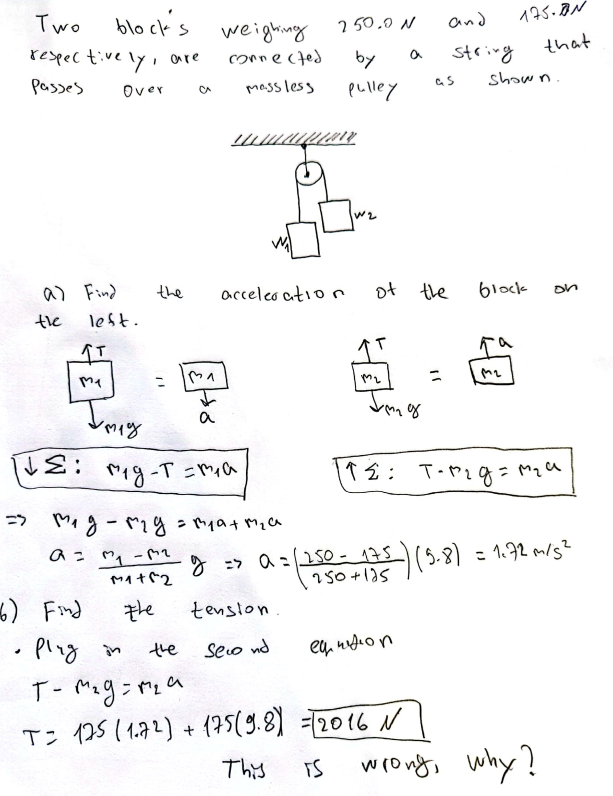 Two block's weighing 250.0 N and 175.0N
respectively, are connected by a string that
Passes over a massless pulley as shown.
W1 W2
a) Find the acceleration of the block on
the left.
↑T m1 ↓m1g = m1 ↓a ↑T m2 ↓m2g = ↑a m2
↓Σ: m1g-T=m1a ↑Σ: T-m2g=m2a
=> m1g-m2g=m1a+m2a
a = (m1-m2)/(m1+m2) g => a = (250-175/250+175)(9.8) = 1.72 m/s²
b) Find the tension.
• Plug in the second equation
T-m2g=m2a
T= 175(1.72)+175(9.8) = 2016 N
This is wrong, why?